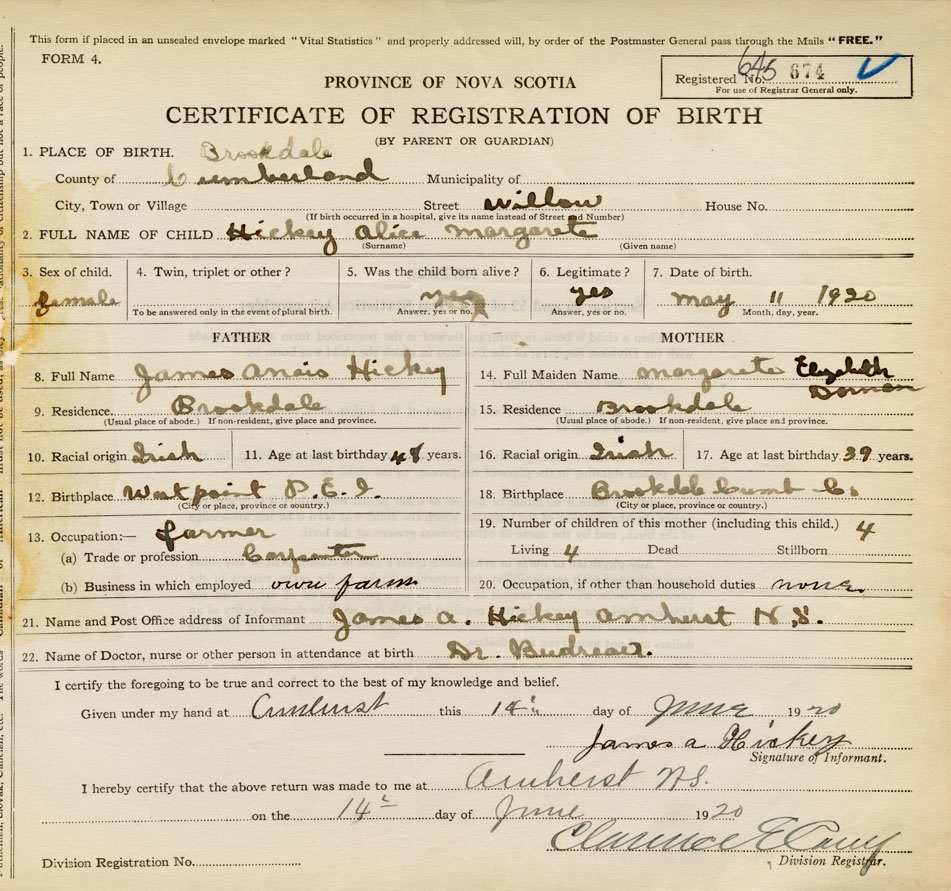 This form if placed in an unsealed envelope marked "Vital Statistics" and properly addressed will, by order of the Postmaster General pass through the Mails "FREE."
FORM 4.
Registered No. 645 674
For use of Registrar General only.
PROVINCE OF NOVA SCOTIA
CERTIFICATE OF REGISTRATION OF BIRTH
(BY PARENT OR GUARDIAN)
1. PLACE OF BIRTH. Brookdale
County of Cumberland Municipality of
City, Town or Village Street Willow House No.
(If birth occurred in a hospital, give its name instead of Street and Number)
2. FULL NAME OF CHILD Hickey Alice Margarete
(Surname) (Given name)
3. Sex of child. 4. Twin, triplet or other? 5. Was the child born alive? 6. Legitimate? 7. Date of birth.
female yes yes May 11 1920
To be answered only in the event of plural birth. Answer, yes or no. Answer, yes or no. Month, day, year.
FATHER MOTHER
8. Full Name James Hickey 14. Full Maiden Name Margarete Elizabeth
Dornan
9. Residence. Brookdale 15. Residence Brookdale
(Usual place of abode.) If non-resident, give place and province. (Usual place of abode.) If non-resident, give place and province.
10. Racial origin Irish 11. Age at last birthday 48 years. 16. Racial origin Irish 17. Age at last birthday 39 years.
12. Birthplace West point P.E.I. 18. Birthplace Brookdale Cumb Co
(City or place, province or country.) (City or place, province or country.)
13. Occupation:— farmer 19. Number of children of this mother (including this child.) 4
(a) Trade or profession Carpenter Living 4 Dead Stillborn
(b) Business in which employed own farm 20. Occupation, if other than household duties none
21. Name and Post Office address of Informant James A. Hickey Amherst N.S.
22. Name of Doctor, nurse or other person in attendance at birth Dr.
I certify the foregoing to be true and correct to the best of my knowledge and belief.
Given under my hand at Amherst this 14th day of June 1920
James A Hickey
Signature of Informant.
I hereby certify that the above return was made to me at Amherst N.S.
on the 14th day of June 1920
Clarence E
Division Registrar.
Division Registration No.